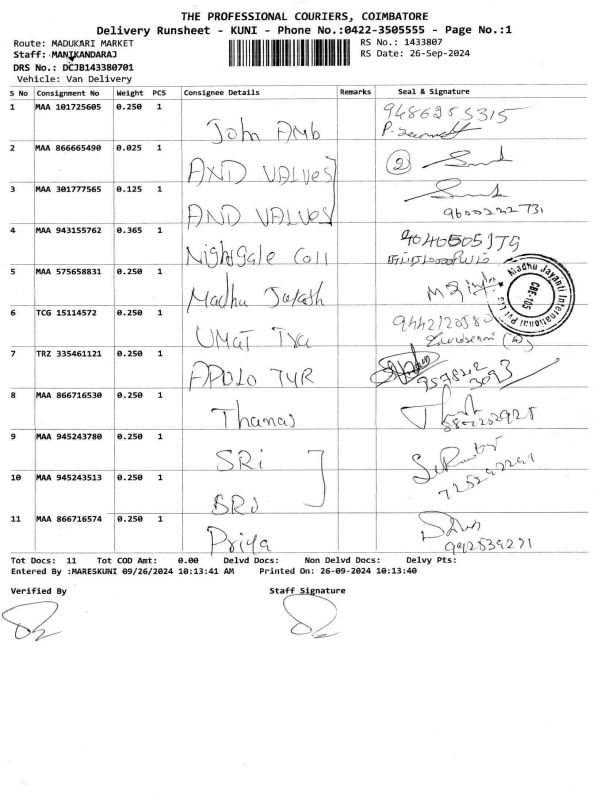 THE PROFESSIONAL COURIERS, COIMBATORE
Delivery Runsheet - KUNI - Phone No.:0422-3505555 - Page No.:1
Route: MADUKARI MARKET RS No.: 1433807
Staff: MANIKANDARAJ RS Date: 26-Sep-2024
DRS No.: DCJB143380701
Vehicle: Van Delivery
S No Consignment No Weight PCS Consignee Details Remarks Seal & Signature
1 MAA 101725605 0.250 1 John 9486255315
2 MAA 866665490 0.025 1 AND VALVES 2
3 MAA 301777565 0.125 1 AND VALVES 9600232731
4 MAA 943155762 0.365 1 Nightgale Coll
5 MAA 575658831 0.250 1 Madhu
Madhu Jayanti International Pvt Ltd
CBE-105
6 TCG 15114572 0.250 1 UMAT
7 TRZ 335461121 0.250 1 APOLO TYR
8 MAA 866716530 0.250 1 Thamas
9 MAA 945243780 0.250 1 SRI
10 MAA 945243513 0.250 1 SRI
11 MAA 866716574 0.250 1 Priya
Tot Docs: 11 Tot COD Amt: 0.00 Delvd Docs: Non Delvd Docs: Delvy Pts:
Entered By :MARESKUNI 09/26/2024 10:13:41 AM Printed On: 26-09-2024 10:13:40
Verified By Staff Signature